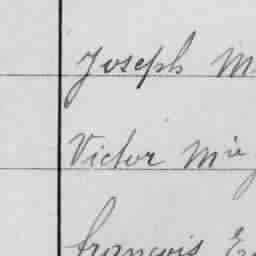 Joseph M
Victor Mie
François E